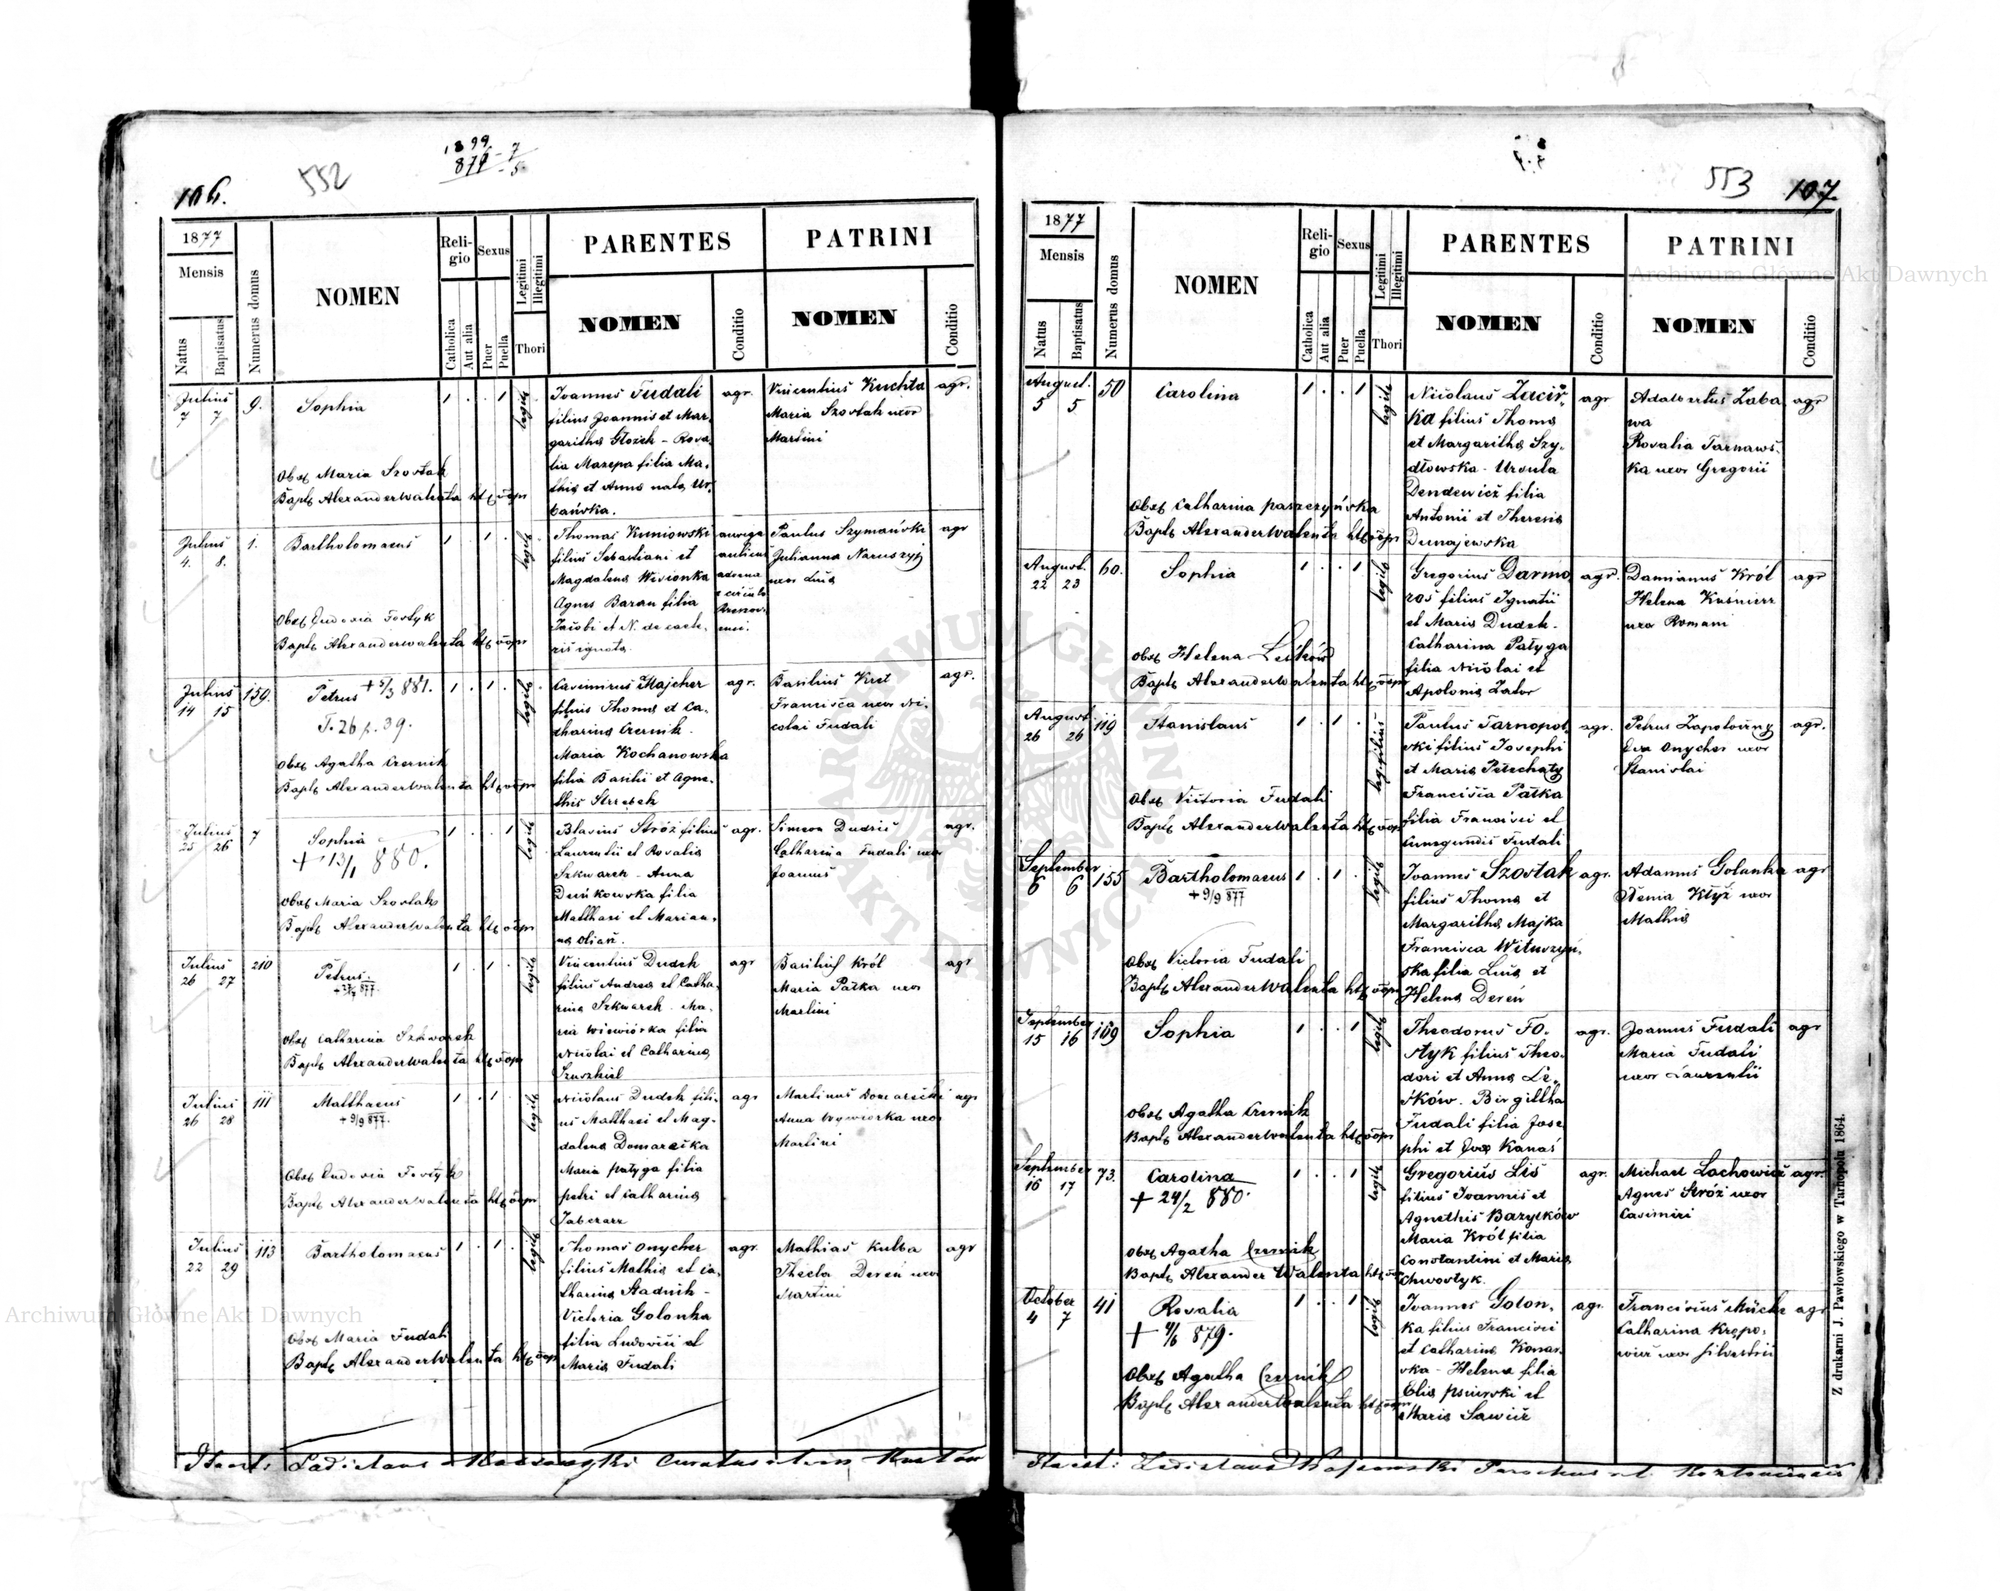 1899
877 - 7/5
106.
552
1877
Mensis
Natus
Baptisatus
Numerus domus
NOMEN
Reli-
gio
Catholica
Aut alia
Sexus
Puer
Puella
Legitimi
Illegitimi
Thori
PARENTES
NOMEN
Conditio
PATRINI
NOMEN
Conditio
Julius
7 7
9.
Sophia
1 . . 1
legit
Obst Maria Szostak
Bapt Alexander Walenta
Ioannes Fudali
filius Joannis et Mar-
garitha Głożek - Rosa-
lia Mazepa filia Ma-
this et Anna nata Ur-
bańska.
agr.
Vincentius Kuchta
Maria Szostak uxor
Martini
agr.
Julius
4. 8.
1.
Bartholomaeus
1 . 1 .
legit
Obst Eudoxia Fostyk
Bapt Alexander Walenta
Thomas Kuniowski
filius Sebastiani et
Magdalena Wisionka
Agnes Baran filia
Jacobi et N. de caete-
ris ignota.
Paulus Szymański
Julianna Naruszy
uxor Luca
agr
Julius
14 15
150.
Petrus + 5/3 881.
T. 26 p. 39.
1 . 1 .
legit
Obst Agatha Czernik
Bapt Alexander Walenta
Casimirus Majcher
filius Thoma et Ca-
tharina Czernik.
Maria Kochanowska
filia Basilii et Agne-
this Strzebek
agr.
Basilius Kret
Francisca uxor Ni-
colai Fudali
agr.
Julius
25 26
7
Sophia
+ 13/1 880.
1 . . 1
legit
Obst Maria Szostak
Bapt Alexander Walenta
Blasius Stróż filius
Laurentii et Rosalia
Szkwarek - Anna
Deńkowska filia
Matthaei et Marian-
na Oliań.
agr.
Simeon Dudzic
Catharina Fudali uxor
Joannis
agr.
Julius
26 27
210
Petrus.
1 . 1 .
legit
Obst Catharina Szkwarek
Bapt Alexander Walenta
Vincentius Dudek
filius Andrea et Catha-
rina Szkwarek. Ma-
ria Wiewiórka filia
Nicolai et Catharina
agr
Basilius Król
Maria Pałka uxor
Martini
agr
Julius
26 28
111
Matthaeus
+ 9/9 877.
1 . 1 .
legit
Obst Eudoxia Fostyk
Bapt Alexander Walenta
Nicolaus Dudek fili-
us Matthaei et Mag-
dalena Domarecka
Maria Patyga filia
Petri et Catharina
agr
Martinus Domarecki
Anna Wiewiorka uxor
Martini
agr
Julius
22 29
113
Bartholomaeus
1 . 1 .
legit
Obst Maria Fudali
Bapt Alexander Walenta
Thomas Onycher
filius Mathia et Ca-
tharina Stadnik -
Victoria Golonka
filia Ludovici et
Maria Fudali
agr.
Mathias Kulba
Thecla Dereń uxor
Martini
agr
553
107.
1877
Mensis
Natus
Baptisatus
Numerus domus
NOMEN
Reli-
gio
Catholica
Aut alia
Sexus
Puer
Puella
Legitimi
Illegitimi
Thori
PARENTES
NOMEN
Conditio
PATRINI
NOMEN
Conditio
August.
5 5
50
Carolina
1 . . 1
legit
Obst Catharina Paszczyńska
Bapt Alexander Walenta
Nicolaus Zuciń-
ka filius Thoma
et Margaritha Szy-
dłowska - Ursula
Dendewicz filia
Antonii et Theresia
Dunajewska
agr
Adalbertus Zaba-
wa
Rosalia Tarnaws-
ka uxor Gregorii
agr
August.
22 23
60.
Sophia
1 . . 1
legit
Obst Helena Leśków
Bapt Alexander Walenta
Gregorius Darmo-
roś filius Ignatii
et Maria Dudek.
Catharina Patyga
filia Nicolai et
Apolonia Zator
agr.
Damianus Król
Helena Kuśnierz
uxor Romani
agr
August
26 26
119
Stanislaus
1 . 1 .
leg. filius
Obst Victoria Fudali
Bapt Alexander Walenta
Paulus Tarnopol-
ski filius Josephi
et Maria Petrchaty
Francisca Pałka
filia Francisci et
Cunegundis Fudali
agr.
Petrus Zapotoczny
Eva Onycher uxor
Stanislai
agr.
September
6 6
155
Bartholomaeus
+ 9/9 877
1 . 1 .
legit
Obst Victoria Fudali
Bapt Alexander Walenta
Ioannes Szostak
filius Thoma et
Margaritha Majka
Francisca Wituszyń-
ska filia Luca et
Helena Dereń
agr.
Adamus Golanka
Xenia Kłyż uxor
Mathia
agr
September
15 16
169
Sophia
1 . . 1
legit
Obst Agatha Czernik
Bapt Alexander Walenta
Theodorus Fo-
styk filius Theo-
dori et Anna Le-
śków. Birgittha
Fudali filia Jose-
phi et Eva Kanaś
agr.
Joannes Fudali
Maria Fudali
uxor Laurentii
agr
September
16 17
73.
Carolina
+ 24/2 880.
1 . . 1
legit
Obst Agatha Czernik
Bapt Alexander Walenta
Gregorius Lis
filius Ioannis et
Agnethis Bazylków
Maria Król filia
Constantini et Maria
Chwostyk.
agr.
Michael Lachowicz
Agnes Stróż uxor
Casimiri
agr.
October
4 7
41
Rosalia
+ 4/6 879.
1 . . 1
legit
Obst Agatha Czernik
Bapt Alexander Walenta
Ioannes Golon-
ka filius Francisci
et Catharina Konar-
ska - Helena filia
Elia Psiurski et
Maria Sawicz
agr.
Franciscus Mück
Catharina Krepo-
wicz uxor Silvestrii
agr
Z drukarni J. Pawłowskiego w Tarnopolu 1864.
Archiwum Główne Akt Dawnych
Archiwum Główne Akt Dawnych
ARCHIWUM GŁÓWNE AKT DAWNYCH